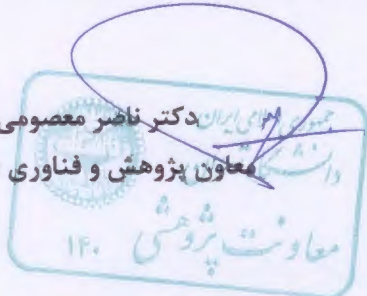 دکتر ناصر معصومی
معاون پژوهش و فناوری
جمهوری اسلامی ایران
معاونت پژوهشی
۱۴۰